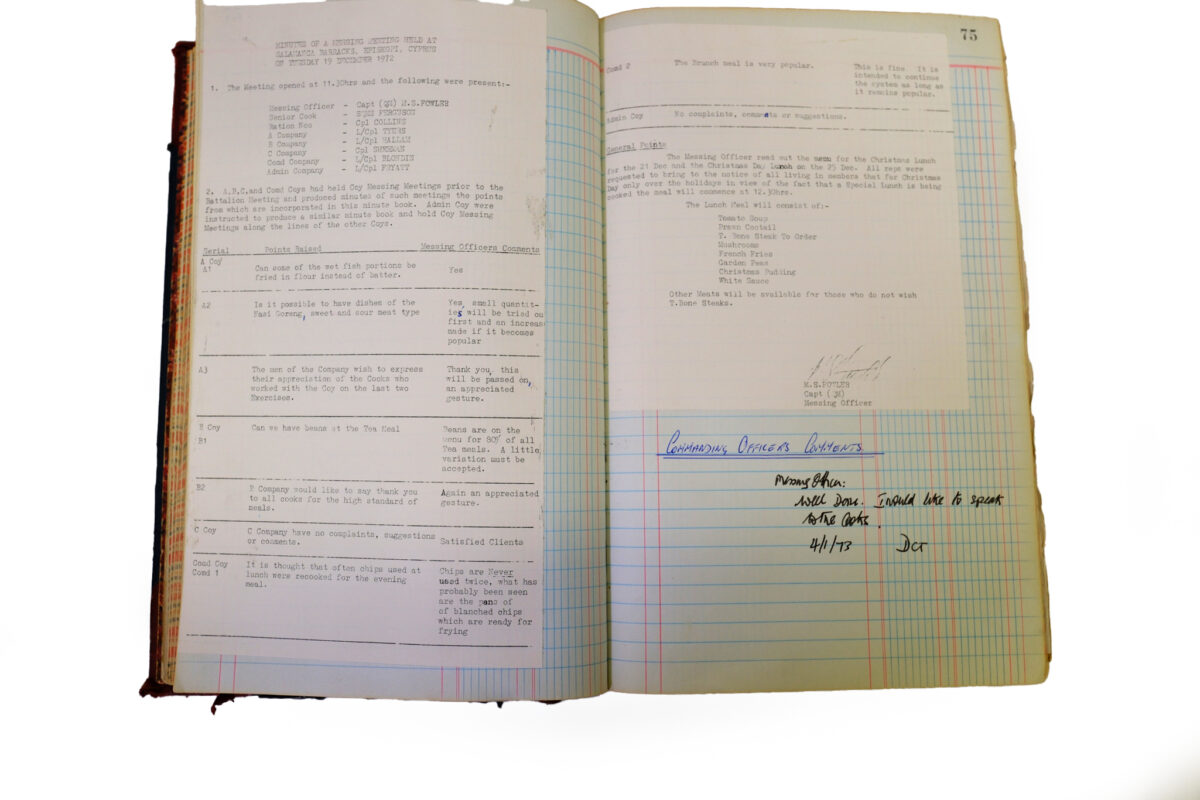 MINUTES OF A MESSING MEETING HELD AT
SALAMANCA BARRACKS, EPISKOPI, CYPRUS
ON TUESDAY 19 DECEMBER 1972
1. The Meeting opened at 11.30hrs and the following were present:-
Messing Officer - Capt (QM) M.S.FOWLER
Senior Cook - FERGUSON
Ration Nco - Cpl COLLINS
A Company - L/Cpl TYERS
B Company - L/Cpl HALLAM
C Company - Cpl
Comd Company - L/Cpl BLONDIN
Admin Company - L/Cpl FRYATT
2. A,B,C,and Comd Coys had held Coy Messing Meetings prior to the
Battalion Meeting and produced minutes of such meetings the points
from which are incorporated in this minute book. Admin Coy were
instructed to produce a similar minute book and hold Coy Messing
Meetings along the lines of the other Coys.
Serial Points Raised Messing Officers Comments
A Coy
A1 Can some of the wet fish portions be Yes
fried in flour instead of batter.
A2 Is it possible to have dishes of the Yes, small quantit-
Nasi Goreng, sweet and sour meat type ies will be tried out
first and an increase
made if it becomes
popular
A3 The men of the Company wish to express Thank you, this
their appreciation of the Cooks who will be passed on,
worked with the Coy on the last two an appreciated
Exercises. gesture.
B Coy Can we have beans at the Tea Meal Beans are on the
B1 menu for 80% of all
Tea meals. A little
variation must be
accepted.
B2 B Company would like to say thank you Again an appreciated
to all cooks for the high standard of gesture.
meals.
C Coy C Company have no complaints, suggestions
or comments. Satisfied Clients
Comd Coy It is thought that often chips used at Chips are Never
Comd 1 lunch were recooked for the evening used twice, what has
meal. probably been seen
are the pans of
of blanched chips
which are ready for
frying
75
Comd 2 The Brunch meal is very popular. This is fine. It is
intended to continue
the system as long as
it remains popular.
Admin Coy No complaints, comments or suggestions.
General Points
The Messing Officer read out the menu for the Christmas Lunch
for the 21 Dec and the Christmas Day Lunch on the 25 Dec. All reps were
requested to bring to the notice of all living in members that for Christmas
Day only over the holidays in view of the fact that a Special Lunch is being
cooked the meal will commence at 12.30hrs.
The Lunch Meal will consist of:-
Tomato Soup
Prawn Coctail
T. Bone Steak To Order
Mushrooms
French Fries
Garden Peas
Christmas Pudding
White Sauce
Other Meats will be available for those who do not wish
T.Bone Steaks.
M.S.FOWLER
Capt (QM)
Messing Officer
COMMANDING OFFICERS COMMENTS
Messing Officer:
Well Done. I would like to speak
to the Cooks.
4/1/73 DCT